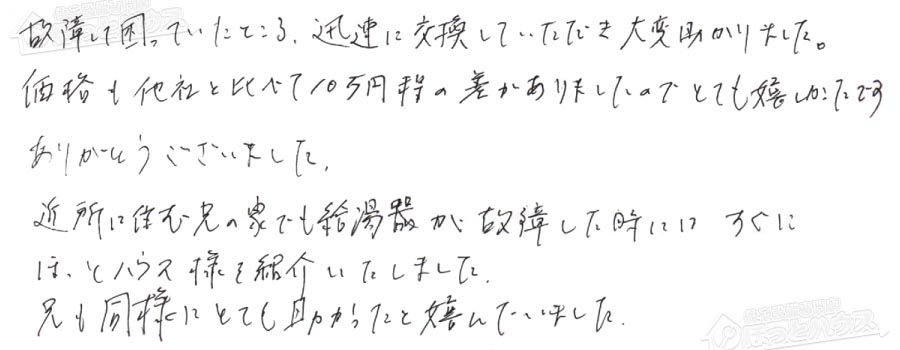 故障して困っていたところ、迅速に交換していただき大変助かりました。
価格も他社と比べて10万円程の差がありましたのでとても嬉しかったです
ありがとうございました。
近所に住む兄の家でも給湯器が故障した時には すぐに
ほっとハウス様を紹介いたしました。
兄も同様にとても助かったと喜んでいました。
ほっとハウス